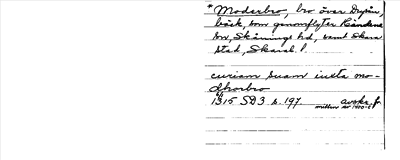 * Moderbro, bro över Dryån,
bäck, som genomflyter Händene
sn, Skånings hd, samt Skara
stad, Skarab. l.
curiam suam iuxta mo-
dhorbro
1315 SD 3 s. 197. avskr. fr.
mitten av 1400-t.